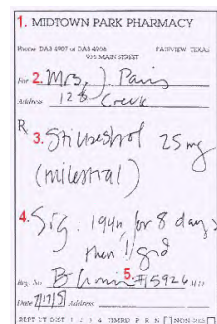 1. MIDTOWN PARK PHARMACY
Phone DA8 4907 or DA8 4908 FAIRVIEW TEXAS
925 MAIN STREET
For 2. Mrs. J. Paris
Address 128 Creek
R 3. Stilbestrol 25 mg
(milestrol)
4. Sig. for 8 days
then
Reg. No 5. #15926 M.D.
Date Address
REPT 1 2 3 4 TIMES P R N NON-REP